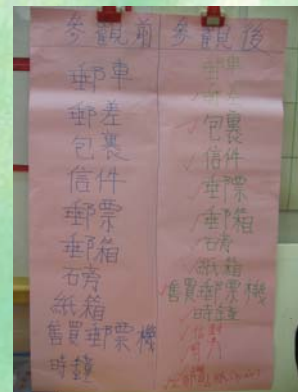 參觀前
郵車
郵差
包裹
信件
郵票
郵箱
石旁
紙箱
售買郵票機
時鐘
參觀後
郵車
包裹
信件
郵票
郵箱
石旁
紙箱
售買郵票機
時鐘